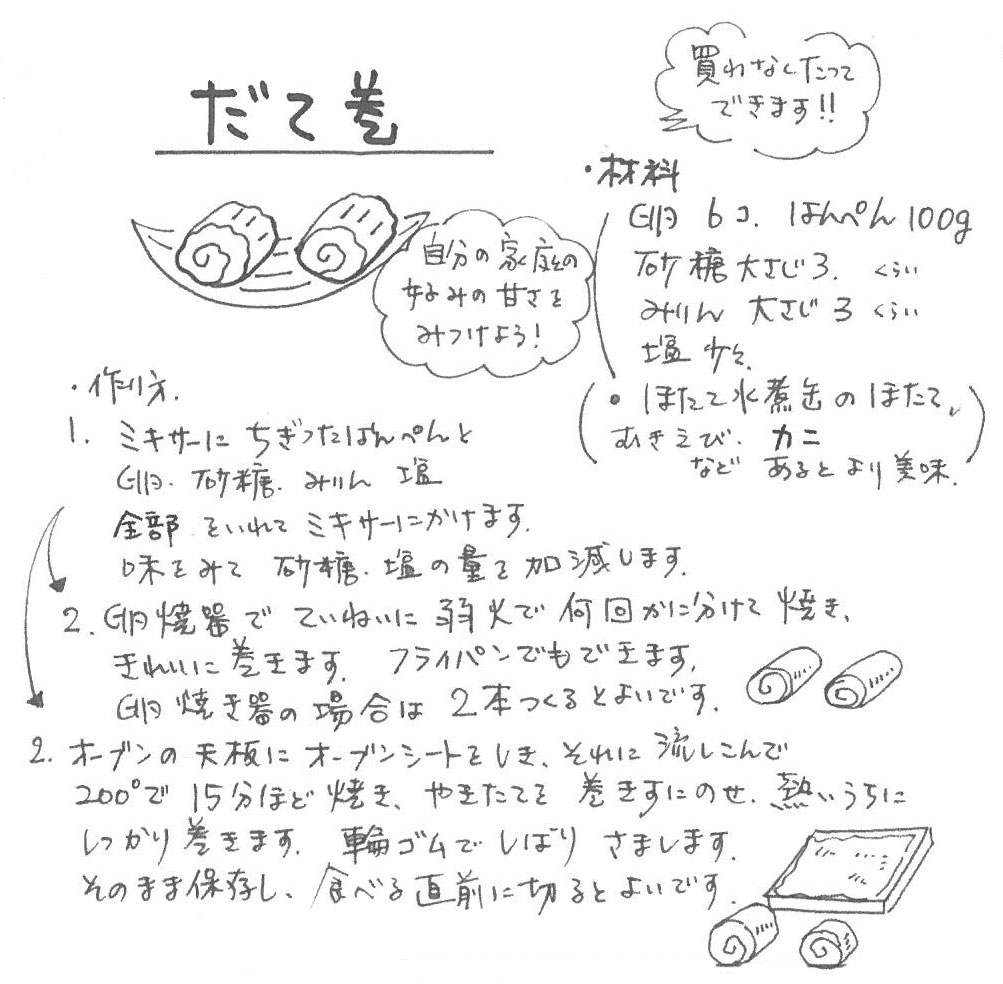 だて巻
買わなくたって
できます!!
自分の家庭の
好みの甘さを
みつけよう!
・材料
卵 6コ. はんぺん 100g
砂糖 大さじ3. くらい
みりん 大さじ3 くらい
塩 少々
(・ほたて水煮缶のほたて、
むきえび. カニ
など あるとより美味.)
・作り方.
1. ミキサーに ちぎったはんぺんと
卵. 砂糖. みりん 塩
全部 をいれて ミキサーにかけます.
味をみて 砂糖. 塩の量を加減します.
2. 卵焼器で ていねいに 弱火で 何回かに分けて 焼き、
きれいに 巻きます. フライパンでもできます.
卵焼き器の場合は 2本つくるとよいです.
2. オーブンの天板に オーブンシートをしき、それに 流しこんで
200°で 15分ほど 焼き、やきたてを 巻きすにのせ. 熱いうちに
しっかり 巻きます. 輪ゴムで しばり さまします.
そのまま保存し、食べる直前に切るとよいです.